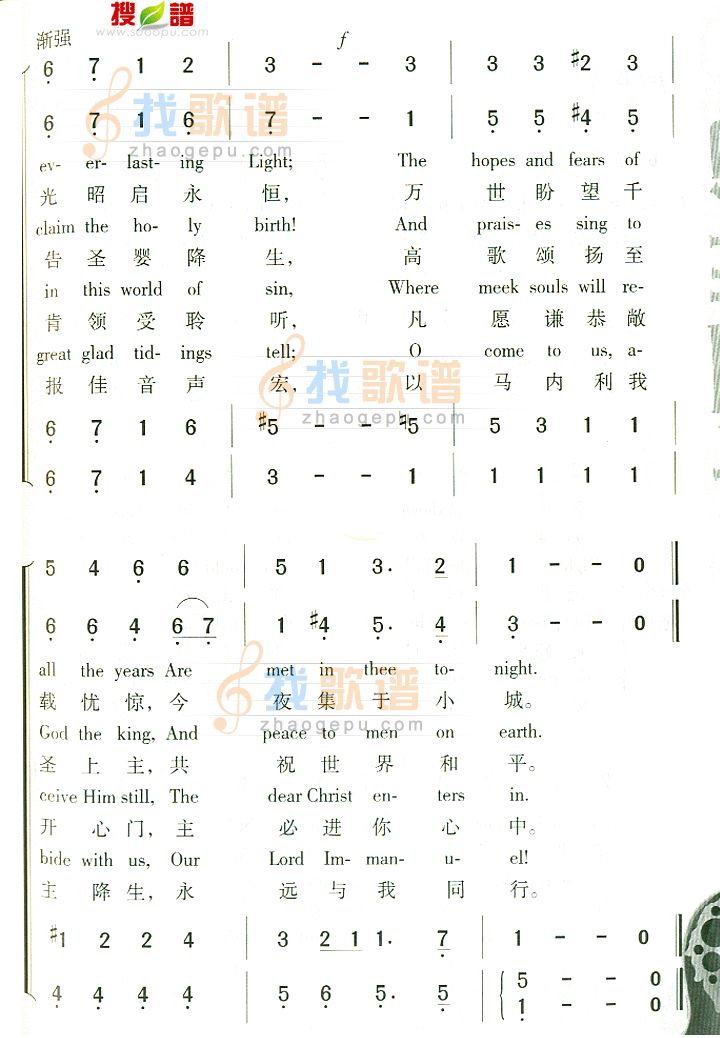 搜谱
www.sooopu.com
渐强 f
6 7 1 2 | 3 - - 3 | 3 3 #2 3 |
6 7 1 6 | 7 - - 1 | 5 5 #4 5 |
找歌谱
zhaogepu.com
ev- er- last- ing Light; The hopes and fears of
光 昭 启 永 恒, 万 世 盼 望 千
claim the ho- ly birth! And prais- es sing to
告 圣 婴 降 生, 高 歌 颂 扬 至
in this world of sin, Where meek souls will re-
肯 领 受 聆 听, 凡 愿 谦 恭 敞
great glad tid- ings tell; O come to us, a-
报 佳 音 声 宏, 以 马 内 利 我
找歌谱
zhaogepu.com
6 7 1 6 | #5 - - #5 | 5 3 1 1 |
6 7 1 4 | 3 - - 1 | 1 1 1 1 |
5 4 6 6 | 5 1 3. 2 | 1 - - 0
6 6 4 6 7 | 1 #4 5. 4 | 3 - - 0
all the years Are met in thee to- night.
载 忧 惊, 今 夜 集 于 小 城。
找歌谱
zhaogepu.com
God the king, And peace to men on earth.
圣 上 主, 共 祝 世 界 和 平。
ceive Him still, The dear Christ en- ters in.
开 心 门, 主 必 进 你 心 中。
bide with us, Our Lord Im- man- u- el!
主 降 生, 永 远 与 我 同 行。
#1 2 2 4 | 3 2 1 1. 7 | 1 - - 0
4 4 4 4 | 5 6 5. 5 | 5 - - 0
1 - - 0